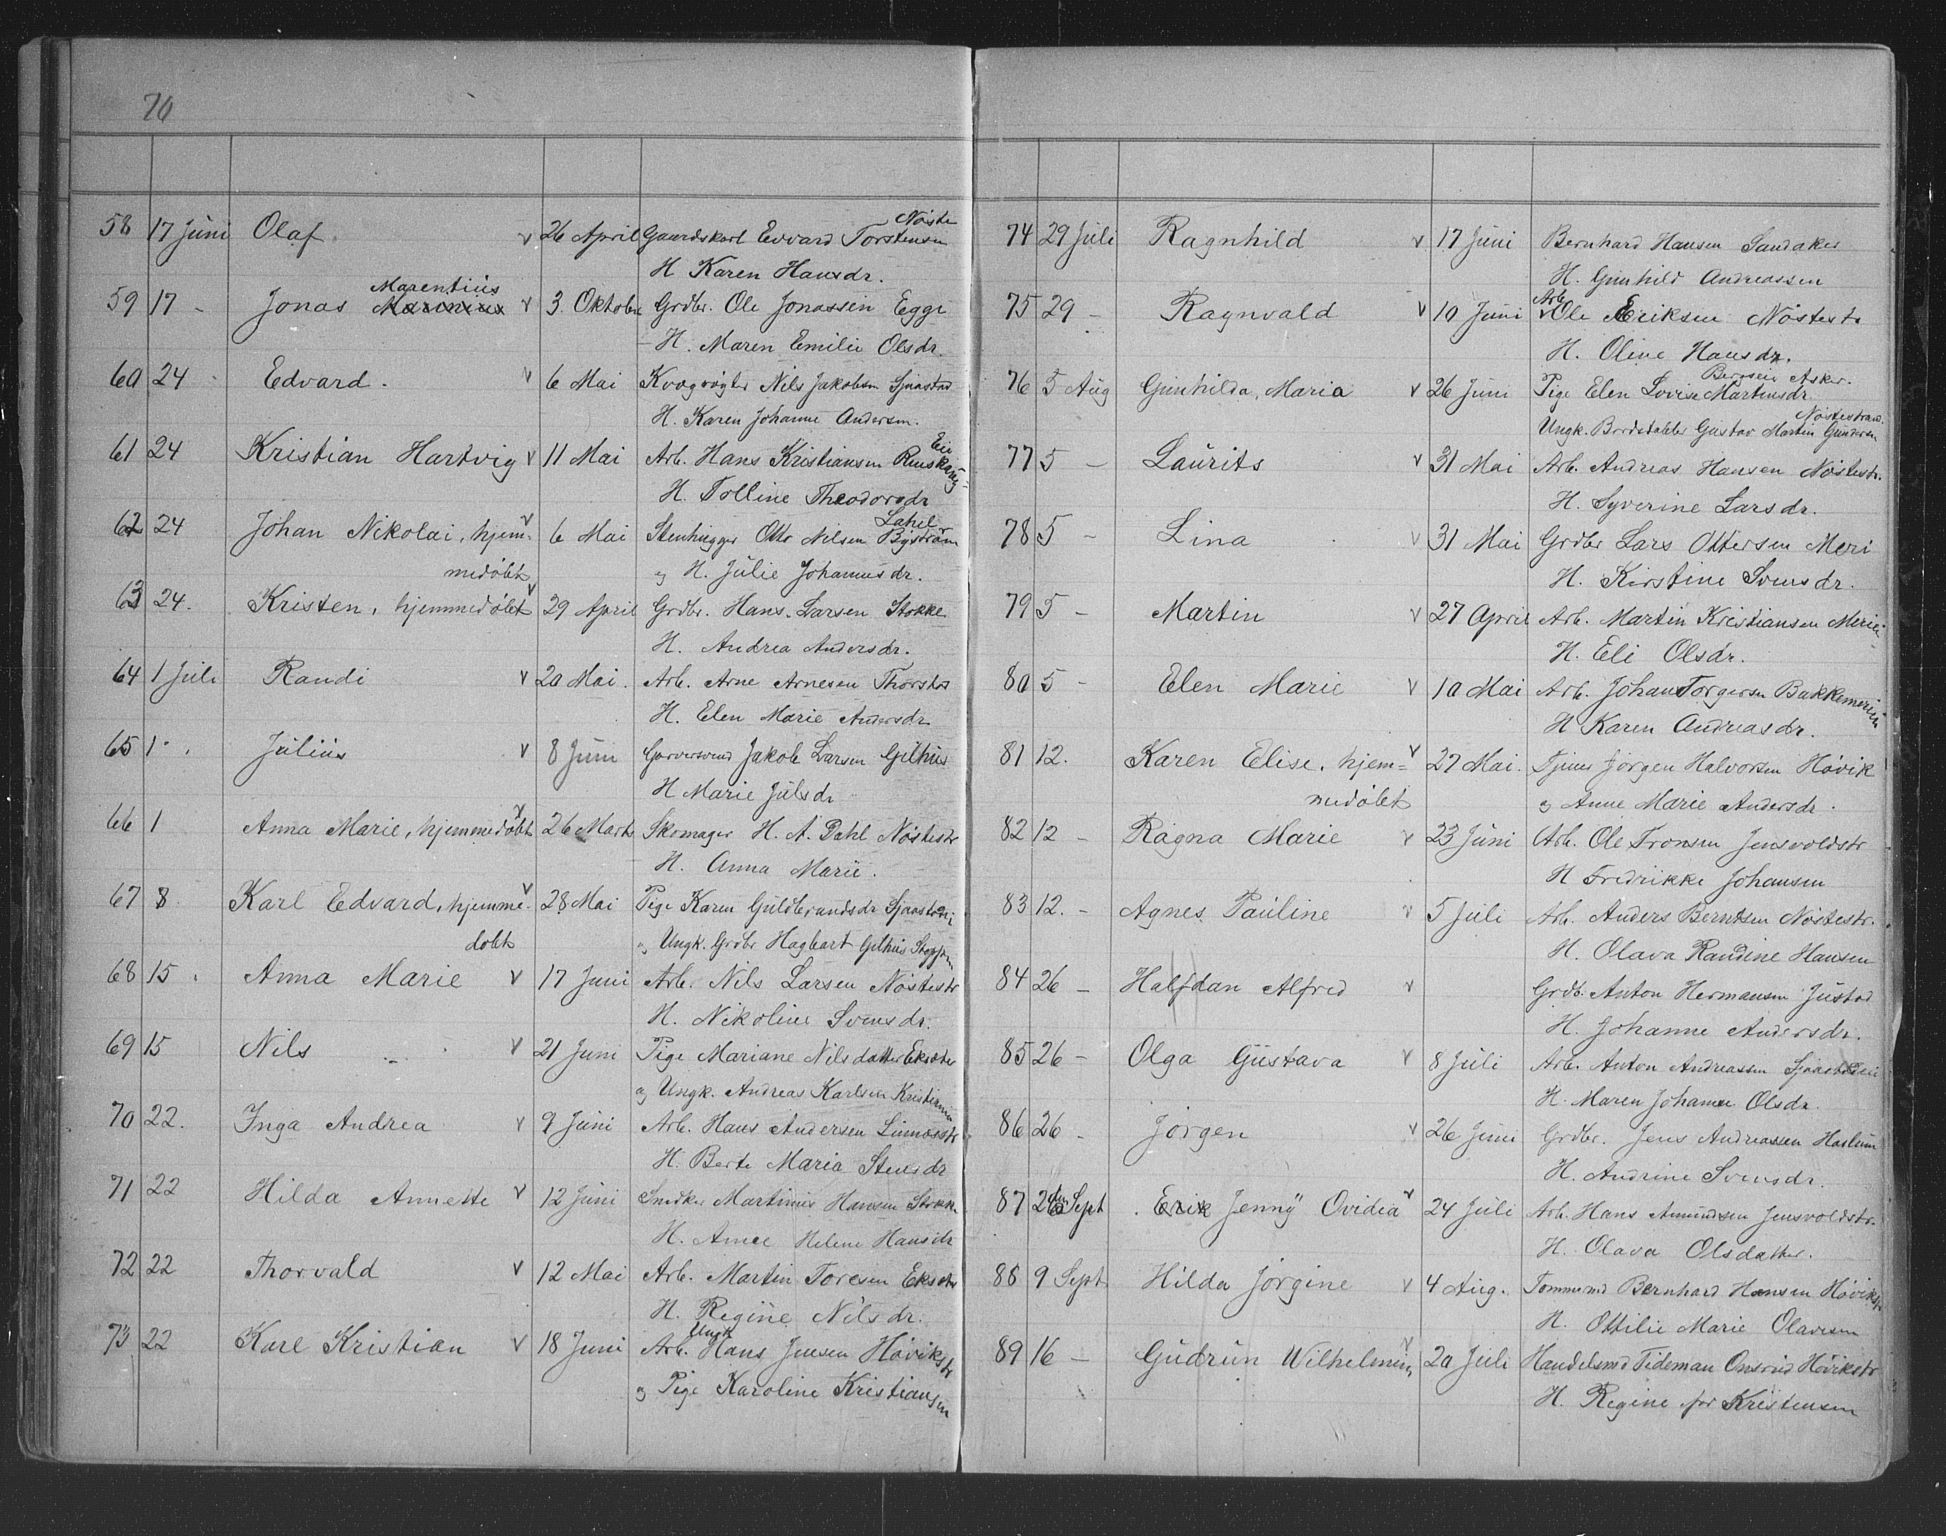 70
58 17 Juni Olaf. v 26 April Gaardskarl Edvard Torstensen Nöste
H Karen Hansdr.
59 17 - Jonas Marinius Marentius v 3. Oktober Grdbr. Ole Jonassen Egge
H. Maren Emilie Olsdr.
60 24 Edvard. v 6 Mai Kvægrögter Nils Jakobsen Sjaastad
H. Karen Johanne Andersen.
61 24 Kristian Hartvig v 11 Mai Arb. Hans Kristiansen Eie
H. Tolline Theodorsdr
62 24 Johan Nikolai, hjem- v 6 Mai Stenhugger Otto Nilsen Byström Lahel
medöbt og H. Julie Johannesdr.
63 24. Kristen, hjemmedöbt v 29 April Grdbr. Hans Larsen Stokke
H. Andrea Andersdr.
64 1 Juli Randi v 20 Mai. Arb. Arne Arnesen
H. Elen Marie Andersdr
65 1 - Julius v 8 Juni Garversvend Jakob Larsen Gilhus
H Marie Julsdr
66 1 Anna Marie, hjemmedöbt v 26 Marts Skomager H. A. Dahl Nöstestr
H. Anna Marie.
67 8 Karl Edvard, hjemme- v 28 Mai Pige Karen Guldbrandsdr
döbt og Ungk. Grdbr Hagbart Gilhus
68 15 Anna Marie v 17 Juni Arb. Nils Larsen Nöstestr
H. Nikoline Svensdr.
69 15 Nils - v 21 Juni Pige Mariane Nilsdatter Eksæter
og Ungk. Andreas Karlsen
70 22. Inga Andrea v 9 Juni Arb. Hans Andersen Linnesstr
H. Berte Maria Stensdr
71 22 Hilda Annette v 12 Juni Snedker Martinius Hansen Stokke
H. Anne Helene Hansdr
72 22 Thorvald v 12 Mai Arb. Martin Toresen
H. Regine Nilsdr.
73 22 Karl Kristian v 18 Juni Arb. Ungk Hans Jensen Hövikstr
og Pige Karoline Kristiansen
74 29 Juli Ragnhild v 17 Juni Bernhard Hansen Sandaker
H. Gunhild Andreassen
75 29 - Ragnvald v 10 Juni Arb. Ole Eriksen Nöstestr
H. Oline Hansdr.
76 5 Aug Gunhilda, Maria v 26 Juni Pige Elen Lovise Martinsdr Asker.
Ungk. Gustav Martin Gundersen Nöstestrand
77 5 - Laurits v 31 Mai Arb. Andreas Hansen Nöstestr.
H. Syverine Larsdr.
78 5 - Lina v 31 Mai Grdbr Lars Ottersen Meri
H. Kirstine Svensdr.
79 5 - Martin v 27 April Arb. Martin Kristiansen
H. Eli Olsdr.
80 5 - Elen Marie v 10 Mai Arb. Johan Torgersen
H Karen Andreasdr.
81 12. Karen Elise, hjem- v 27 Mai. Tjener Jörgen Halvorsen Hövik
medöbt og Anne Marie Andersdr.
82 12 - Ragna Marie v 23 Juni Arb. Ole Tronsen Jensvoldstr
H Fredrikke Johansen
83 12. - Agnes Pauline v 5 Juli Arb. Anders Berntsen Nöstestr.
H. Olava Randine Hansen
84 26 - Halfdan Alfred v Grdb. Anton Hermansen Justad
H. Johanne Andersdr.
85 26 - Olga Gustava v 8 Juli Arb. Anton Andreassen
H. Maren Johanne Olsdr.
86 26 - Jörgen v 26 Juni Grdbr. Jens Andreassen Haslum
H. Andrine Svensdr.
87 Sept. Erik Jenny Ovidia v 24 Juli Arb. Hans Amundsen Jensvoldstr.
H. Olava Olsdatter.
88 9 Sept Hilda Jörgine v 4 Aug. Tömmermd Bernhard Hansen Hövikstr
H. Ottilie Marie Olavesen
89 16 - Gudrun Wilhelmine v 20 Juli Handelsmd Tideman Onsrud Hövikstr
H. Regine för Kristensen